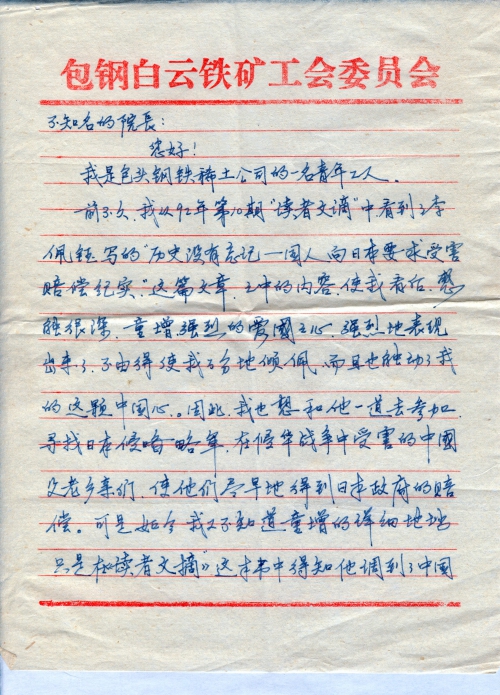 包钢白云铁矿工会委员会
不知名的院長：
您好！
我是包头钢铁稀土公司的一名青年工人。
前不久，我从92年第10期“读者文摘”中看到了李
佩钰写的“历史没有忘记—国人向日本要求受害
赔偿纪实”这篇文章，文中的内容，使我看后，感
触很深，童增强烈的爱國之心，强烈地表现
出来了，不由得使我万分地倾佩，而且也触动了我
的这颗中国心。因此，我也想和他一道去参加
寻找日本侵略军，在侵华战争中受害的中國
父老乡亲们，使他们尽早地得到日本政府的赔
偿。可是如今我又不知道童增的详细地址
只是从《读者文摘》这本书中得知他调到了中国